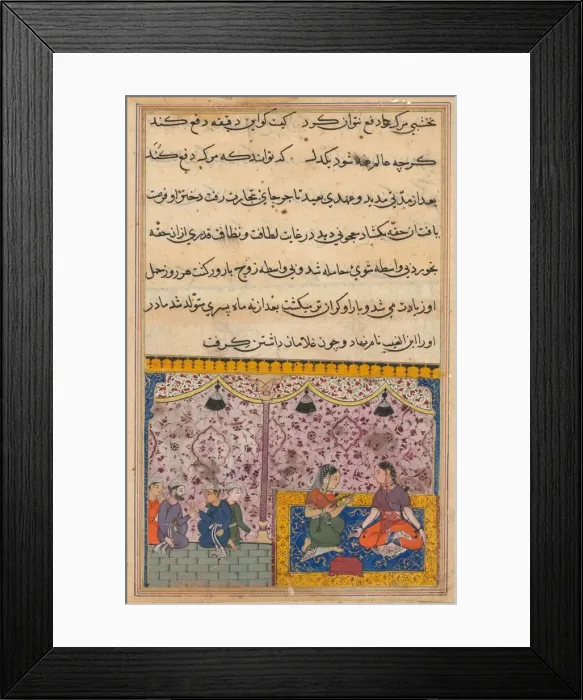 نخشبی مرک را دفع نتوان کرد کیت کو این دقیقه دفع کند
کرچه عالم همه شود یکدل که تواند که مرک دفع کند
بعد از مدتی مدید و عهدی بعید تاجر جای تجارت رفت دختر او فرصت
یافت ان حقه بکشاد معجونی دید در غایت لطافت و نظافت قدری از ان حقه
بخورد بی واسطه شوی حامله شد و بی واسطه زوج بارور کشت هر روز حمل
او زیادت می شد و بار او کران تر میکشت بعد از نه ماه پسری متولد شد مادر
او را ابن الغیب نام نهاد و چون غلامان داشتن کرفت